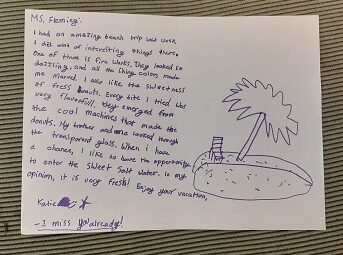 Ms. Fleming:
I had an amazing beach trip last week
I did alot of interesting things there,
One of them is fire works. They looked so
dazzling, and all the shiny colors made
me marvel. I also like the sweetness
of fress Donuts. Every bite I tried was
very flavorfull. They emerged from
the cool machines that made the
donuts. My brother and me looked through
the transparent glass. When i have
a chance, I like to have the opportunity
to enter the sweet salt water. In my
opinion, it is very fresh! Enjoy your vacation,
Katie
- I miss you already!